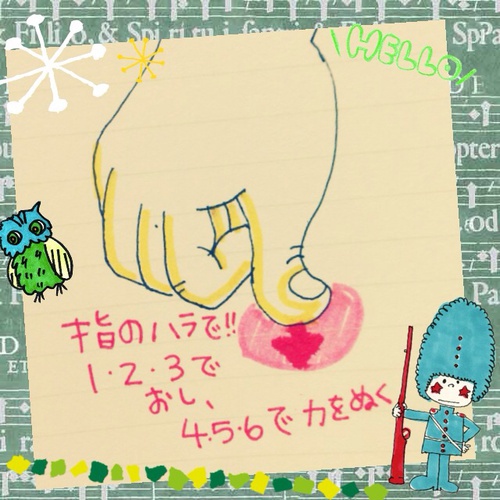 HELLO
指のハラで!!
1・2・3で
おし、
4.5.6で力をぬく